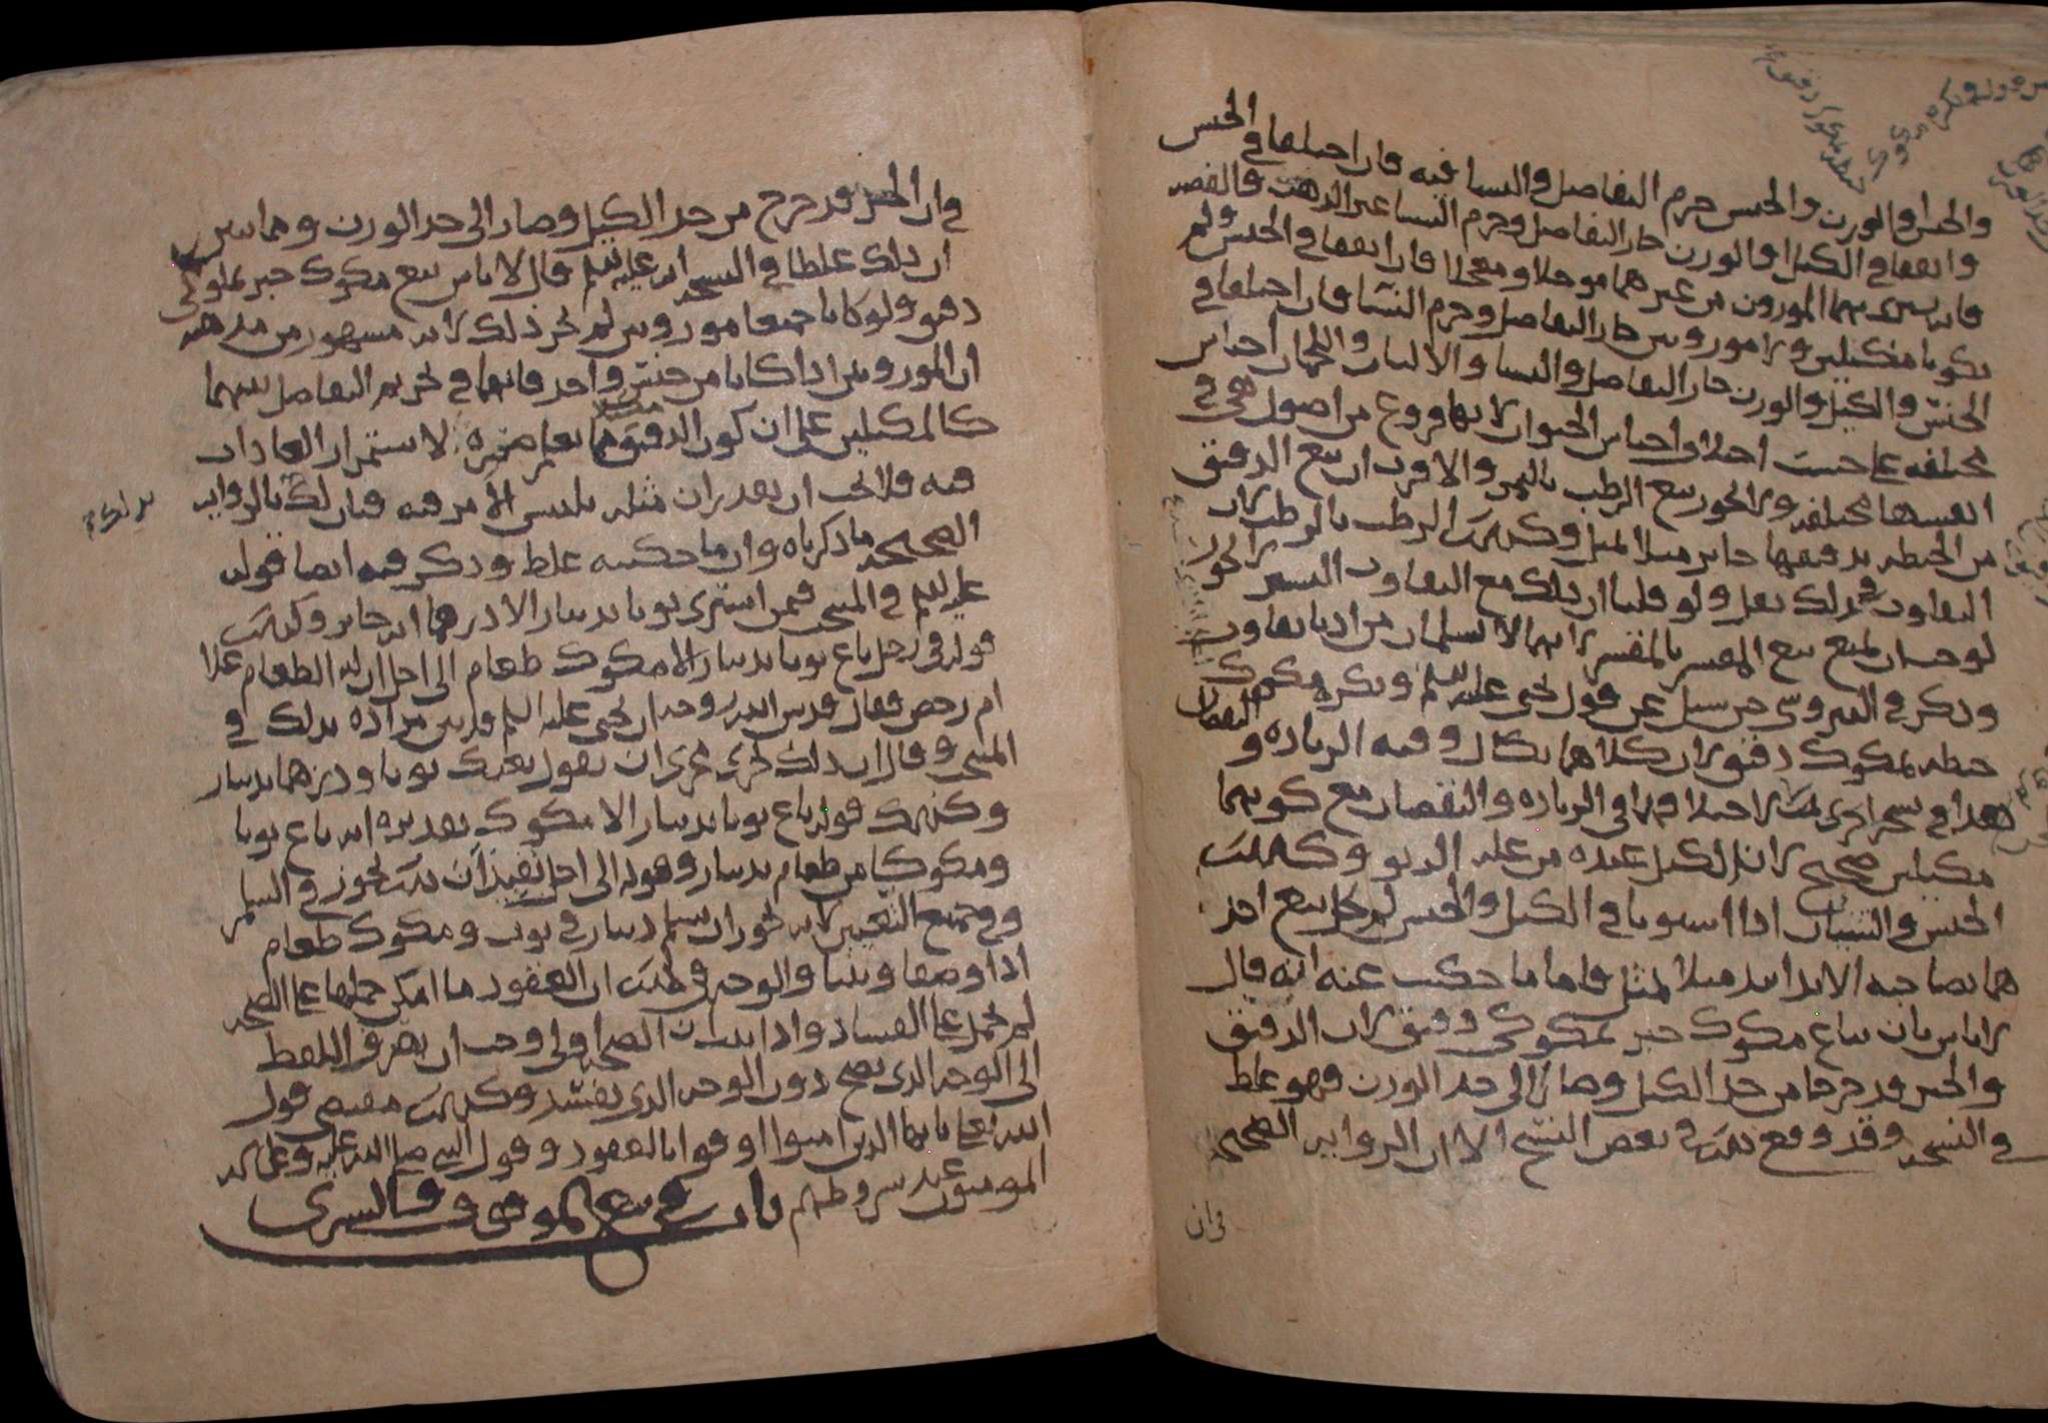 والجنس او الوزن والجنس حرم التفاضل والنسا فيه فان اختلفا في الجنس
واتفقا في الكيل او الوزن جاز التفاضل وحرم النسا غير الذهب والفضه
فانه يشترى بهما الموزون من غيرهما موجلا ومعجلا فان اتفقا في الجنس ولم
يكونا مكيلين ولا موزونين جاز التفاضل وحرم النسا فان اختلفا في
الجنس والكيل والوزن جاز التفاضل والنسا والالبان واللحمان اجناس
مختلفه على حسب اختلاف اجناس الحيوان لانها فروع من اصول هي في
انفسها مختلفه ولا يجوز بيع الرطب بالتمر والاقرب ان بيع الدقيق
من الحنطه بدقيقها جايز مثلا بمثل وكذلك الرطب بالرطب لان
التفاوت في ذلك يقل ولو قلنا ان ذلك مع التفاوت اليسير لا يجوز
لوجب ان يمنع بيع المقشر بالمقشر لانهما لا يسلمان من ادنا تفاوت
وذكر في النيروسي حين سيل عن قول يحيى عليه السلم ويكره مكوك
حنطه بمكوك دقيق لان كلاهما يكال وفيه الزياده والنقصان
هذا في نسخه اخرى لان اختلافهما في الزياده والنقصان مع كونهما
مكيلين صحيح لانه الكيل عنده من عله الربو وكذلك
الجنس والشيان اذا استويا في الكيل والجنس لم يحل بيع احد
هما بصاحبه الا يدا بيد مثلا بمثل فاما ما حكيت عنه انه قال
لا باس بان يباع مكوك خبز بمكوكي دقيق لان الدقيق
والخبز قد خرجا من حد الكيل وصارا الى حد الوزن فهو غلط
في النسخه وقد وقع ذلك في بعض النسخ الا ان الروايه الصحيحه
فان
في ان الخبز قد خرج من حد الكيل وصار الى حد الوزن ومما يبين
ان ذلك غلطا في النسخه انه عليه السلم قال لا باس ببيع مكوك خبز بمكوكي
دقيق ولو كانا جميعا موزونين لم يجز ذلك لانه مشهور من مذهبه
ان الموزونين اذا كانا من جنس واحد فانهما في تحريم التفاضل بينهما
كالمكيلين على ان كون الدقيق مكيلا مما يعلم ضروره لاستمرار العادات
فيه فلا يجب ان يقدر ان مثله يلتبس الامر فيه فبان لك بالروايه
الصحيحه ما ذكرناه وان ما حكيته غلط وذكر فيه ايضا قوله
عليه السلم في المنتخب فيمن اشترى ثوبا بدينار الا درهما انه جايز وكذلك
قوله في رجل باع ثوبا بدينار الا مكوك طعام الى اجل ان له الطعام غلا
ام رخص فقال قدس الله روحه ان يحيى عليه السلم قد بين مراده بذلك في
المنتخب وقال ان ذلك يجري مجرى ان تقول بعتك ثوبا ودرهما بدينار
وكذلك قوله باع ثوبا بدينار الا مكوك تقديره انه باع ثوبا
ومكوكا من طعام بدينار وقوله الى اجل يفيد ان ذلك يجوز في السلم
وفي جميع التعيين لانه يجوز ان يسلم دينار في ثوب ومكوك طعام
اذا وصفا وبينا والوجه في ذلك ان العقود ما امكن حملها على الصحه
لم تحمل على الفساد واذا ثبت ان الصحه اولى وجب ان يصرف اللفظ
الى الوجه الذي يصح دون الوجه الذي يفسد وكذلك مقتضى قول
الله تعالى يا ايها الذين امنوا اوفوا بالعقود وقول النبي صلى الله عليه وعلى اله
المومنون عند شروطهم باب في بيع الموقوف والشرى